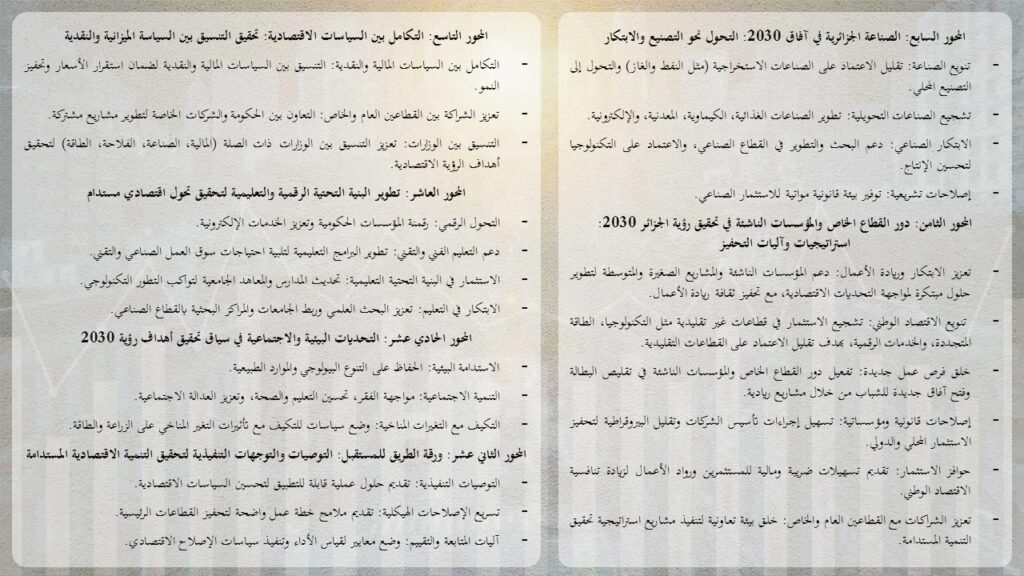 المحور السابع: الصناعة الجزائرية في آفاق 2030: التحول نحو التصنيع والابتكار
- تنويع الصناعة: تقليل الاعتماد على الصناعات الاستخراجية (مثل النفط والغاز) والتحول إلى
التصنيع المحلي.
- تشجيع الصناعات التحويلية: تطوير الصناعات الغذائية، الكيماوية، المعدنية، والإلكترونية.
- الابتكار الصناعي: دعم البحث والتطوير في القطاع الصناعي، والاعتماد على التكنولوجيا
لتحسين الإنتاج.
- إصلاحات تشريعية: توفير بيئة قانونية مواتية للاستثمار الصناعي.
المحور الثامن: دور القطاع الخاص والمؤسسات الناشئة في تحقيق رؤية الجزائر 2030:
استراتيجيات وآليات التحفيز
- تعزيز الابتكار وريادة الأعمال: دعم المؤسسات الناشئة والمشاريع الصغيرة والمتوسطة لتطوير
حلول مبتكرة لمواجهة التحديات الاقتصادية، مع تحفيز ثقافة ريادة الأعمال.
- تنويع الاقتصاد الوطني: تشجيع الاستثمار في قطاعات غير تقليدية مثل التكنولوجيا، الطاقة
المتجددة، والخدمات الرقمية، بهدف تقليل الاعتماد على القطاعات التقليدية.
- خلق فرص عمل جديدة: تفعيل دور القطاع الخاص والمؤسسات الناشئة في تقليص البطالة
وفتح آفاق جديدة للشباب من خلال مشاريع ريادية.
- إصلاحات قانونية ومؤسساتية: تسهيل إجراءات تأسيس الشركات وتقليل البيروقراطية لتحفيز
الاستثمار المحلي والدولي.
- حوافز الاستثمار: تقديم تسهيلات ضريبية ومالية للمستثمرين ورواد الأعمال لزيادة تنافسية
الاقتصاد الوطني.
- تعزيز الشراكات مع القطاعين العام والخاص: خلق بيئة تعاونية لتنفيذ مشاريع استراتيجية تحقيق
التنمية المستدامة.
المحور التاسع: التكامل بين السياسات الاقتصادية: تحقيق التنسيق بين السياسة الميزانية والنقدية
- التكامل بين السياسات المالية والنقدية: التنسيق بين السياسات المالية والنقدية لضمان استقرار الأسعار وتحفيز
النمو.
- تعزيز الشراكة بين القطاعين العام والخاص: التعاون بين الحكومة والشركات الخاصة لتطوير مشاريع مشتركة.
- التنسيق بين الوزارات: تعزيز التنسيق بين الوزارات ذات الصلة (المالية، الصناعة، الفلاحة، الطاقة) لتحقيق
أهداف الرؤية الاقتصادية.
المحور العاشر: تطوير البنية التحتية الرقمية والتعليمية لتحقيق تحول اقتصادي مستدام
- التحول الرقمي: رقمنة المؤسسات الحكومية وتعزيز الخدمات الإلكترونية.
- دعم التعليم الفني والتقني: تطوير البرامج التعليمية لتلبية احتياجات سوق العمل الصناعي والتقني.
- الاستثمار في البنية التحتية التعليمية: تحديث المدارس والمعاهد الجامعية لتواكب التطور التكنولوجي.
- الابتكار في التعليم: تعزيز البحث العلمي وربط الجامعات والمراكز البحثية بالقطاع الصناعي.
المحور الحادي عشر: التحديات البيئية والاجتماعية في سياق تحقيق أهداف رؤية 2030
- الاستدامة البيئية: الحفاظ على التنوع البيولوجي والموارد الطبيعية.
- التنمية الاجتماعية: مواجهة الفقر، تحسين التعليم والصحة، وتعزيز العدالة الاجتماعية.
- التكيف مع التغيرات المناخية: وضع سياسات للتكيف مع تأثيرات التغير المناخي على الزراعة والطاقة.
المحور الثاني عشر: ورقة الطريق للمستقبل: التوصيات والتوجهات التنفيذية لتحقيق التنمية الاقتصادية المستدامة
- التوصيات التنفيذية: تقديم حلول عملية قابلة للتطبيق لتحسين السياسات الاقتصادية.
- تسريع الإصلاحات الهيكلية: تقديم ملامح خطة عمل واضحة لتحفيز القطاعات الرئيسية.
- آليات المتابعة والتقييم: وضع معايير لقياس الأداء وتنفيذ سياسات الإصلاح الاقتصادي.